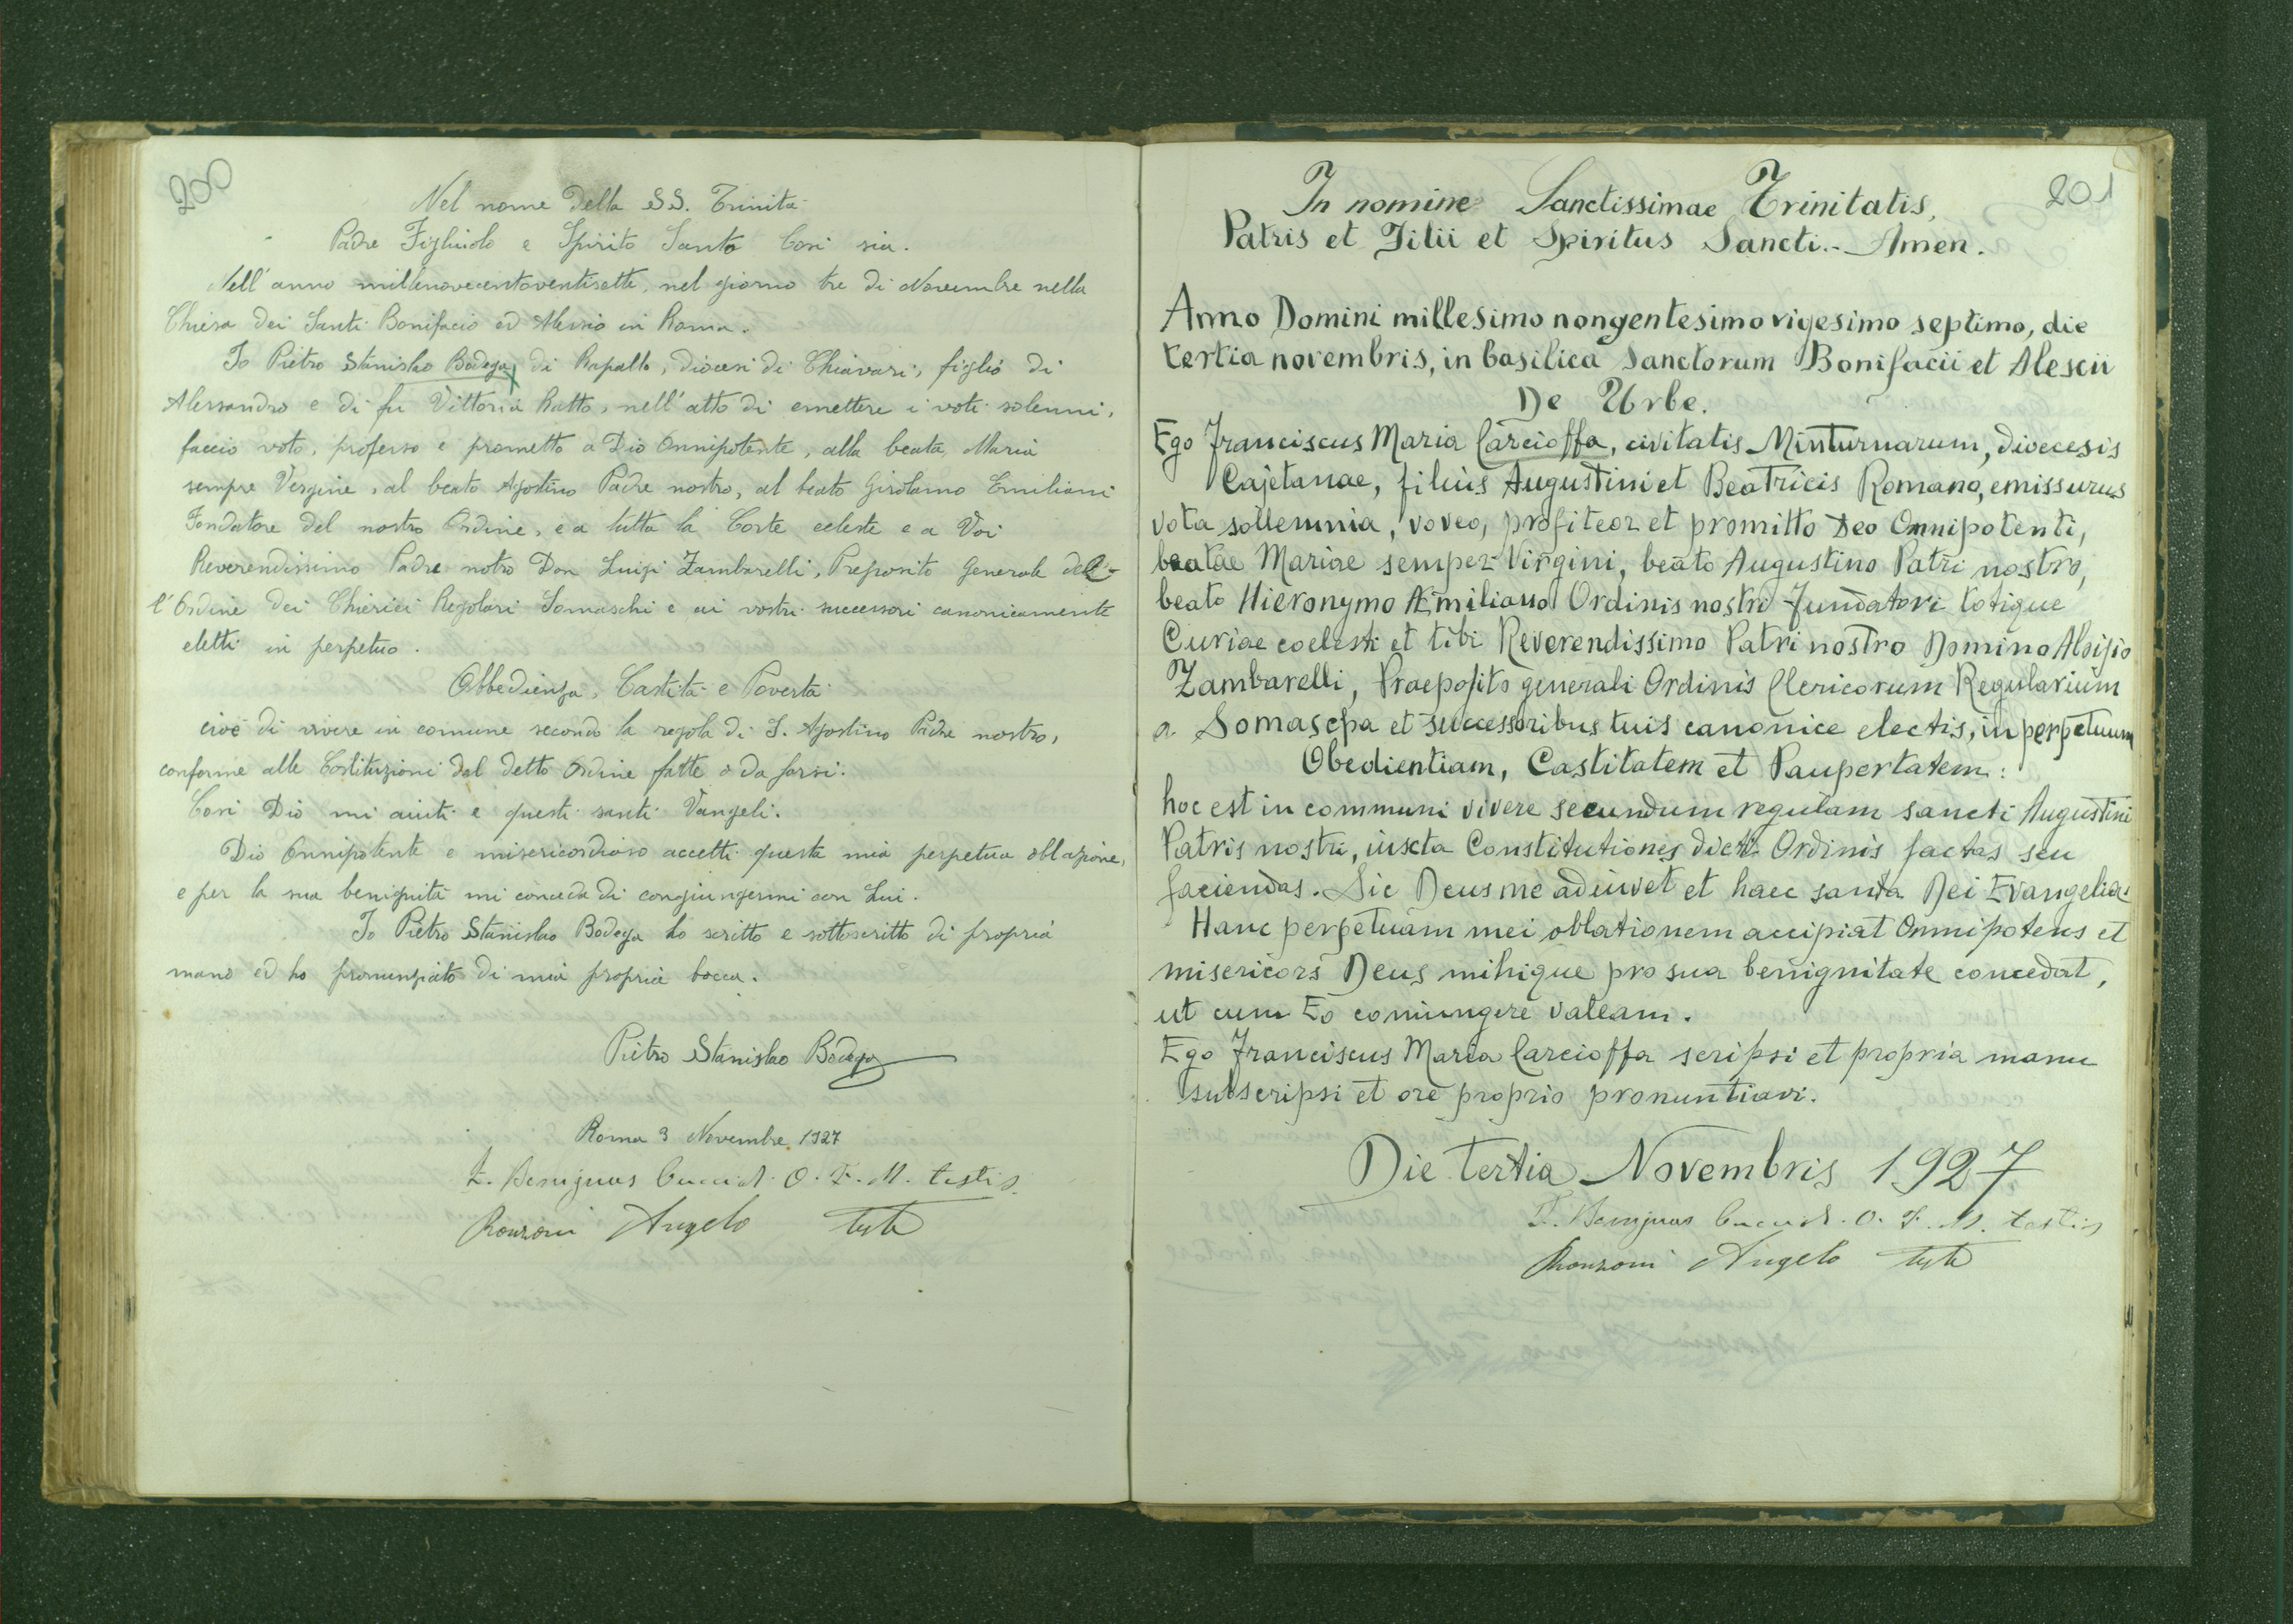 200
Nel nome della SS. Trinità
Padre Figliuolo e Spirito Santo Così sia.
Nell'anno millenovecentoventisette, nel giorno tre di Novembre nella
Chiesa dei Santi Bonifacio ed Alessio in Roma.
Io Pietro Stanislao Bodega, di Rapallo, diocesi di Chiavari, figlio di
Alessandro e di fu Vittoria Ratto, nell'atto di emettere i voti solenni,
faccio voto, professo e prometto a Dio Onnipotente, alla beata Maria
sempre Vergine, al beato Agostino Padre nostro, al beato Girolamo Emiliani
Fondatore del nostro Ordine, e a tutta la Corte celeste e a Voi
Reverendissimo Padre nostro Don Luigi Zambarelli, Preposito Generale del-
l'Ordine dei Chierici Regolari Somaschi e ai vostri successori canonicamente
eletti in perpetuo.
Obbedienza, Castità e Povertà
cioè di vivere in comune secondo la regola di S. Agostino Padre nostro,
conforme alle Costituzioni dal detto Ordine fatte o da farsi.
Così Dio mi aiuti e questi santi Vangeli.
Dio Onnipotente e misericordioso accetti questa mia perpetua oblazione,
e per la sua benignità mi conceda di congiungermi con Lui.
Io Pietro Stanislao Bodega ho scritto e sottoscritto di propria
mano ed ho pronunziato di mia propria bocca.
Pietro Stanislao Bodega
Roma 3 Novembre 1927
F. Benignus O. F. M. testis.
Ronzoni Angelo teste
201
In nomine Sanctissimae Trinitatis,
Patris et Filii et Spiritus Sancti.- Amen.
Anno Domini millesimo nongentesimo vigesimo septimo, die
tertia novembris, in basilica Sanctorum Bonifacii et Alescii
De Urbe.
Ego Franciscus Maria Carcioffa, civitatis Minturnarum, dioecesis
Cajetanae, filius Augustini et Beatricis Romano, emissurus
vota sollemnia, voveo, profiteor et promitto Deo Omnipotenti,
beatae Mariae semper Virgini, beato Augustino Patri nostro,
beato Hieronymo Æmiliano Ordinis nostri Fundatori totique
Curiae coelesti et tibi Reverendissimo Patri nostro Domino Aloisio
Zambarelli, Praeposito generali Ordinis Clericorum Regularium
a Somascha et successoribus tuis canonice electis, in perpetuum
Obedientiam, Castitatem et Paupertatem:
hoc est in communi vivere secundum regulam sancti Augustini
Patris nostri, iuxta Constitutiones dicti Ordinis factas seu
faciendas. Sic Deus me adiuvet et haec santa Dei Evangelia
Hanc perpetuam mei oblationem accipiat Omnipotens et
misericors Deus mihique pro sua benignitate concedat,
ut cum Eo coniungere valeam.
Ego Franciscus Maria Carcioffa scripsi et propria manu
subscripsi et ore proprio pronuntiavi.
Die tertia Novembris 1927
F. Benignus O. F. M. testis
Ronzoni Angelo teste